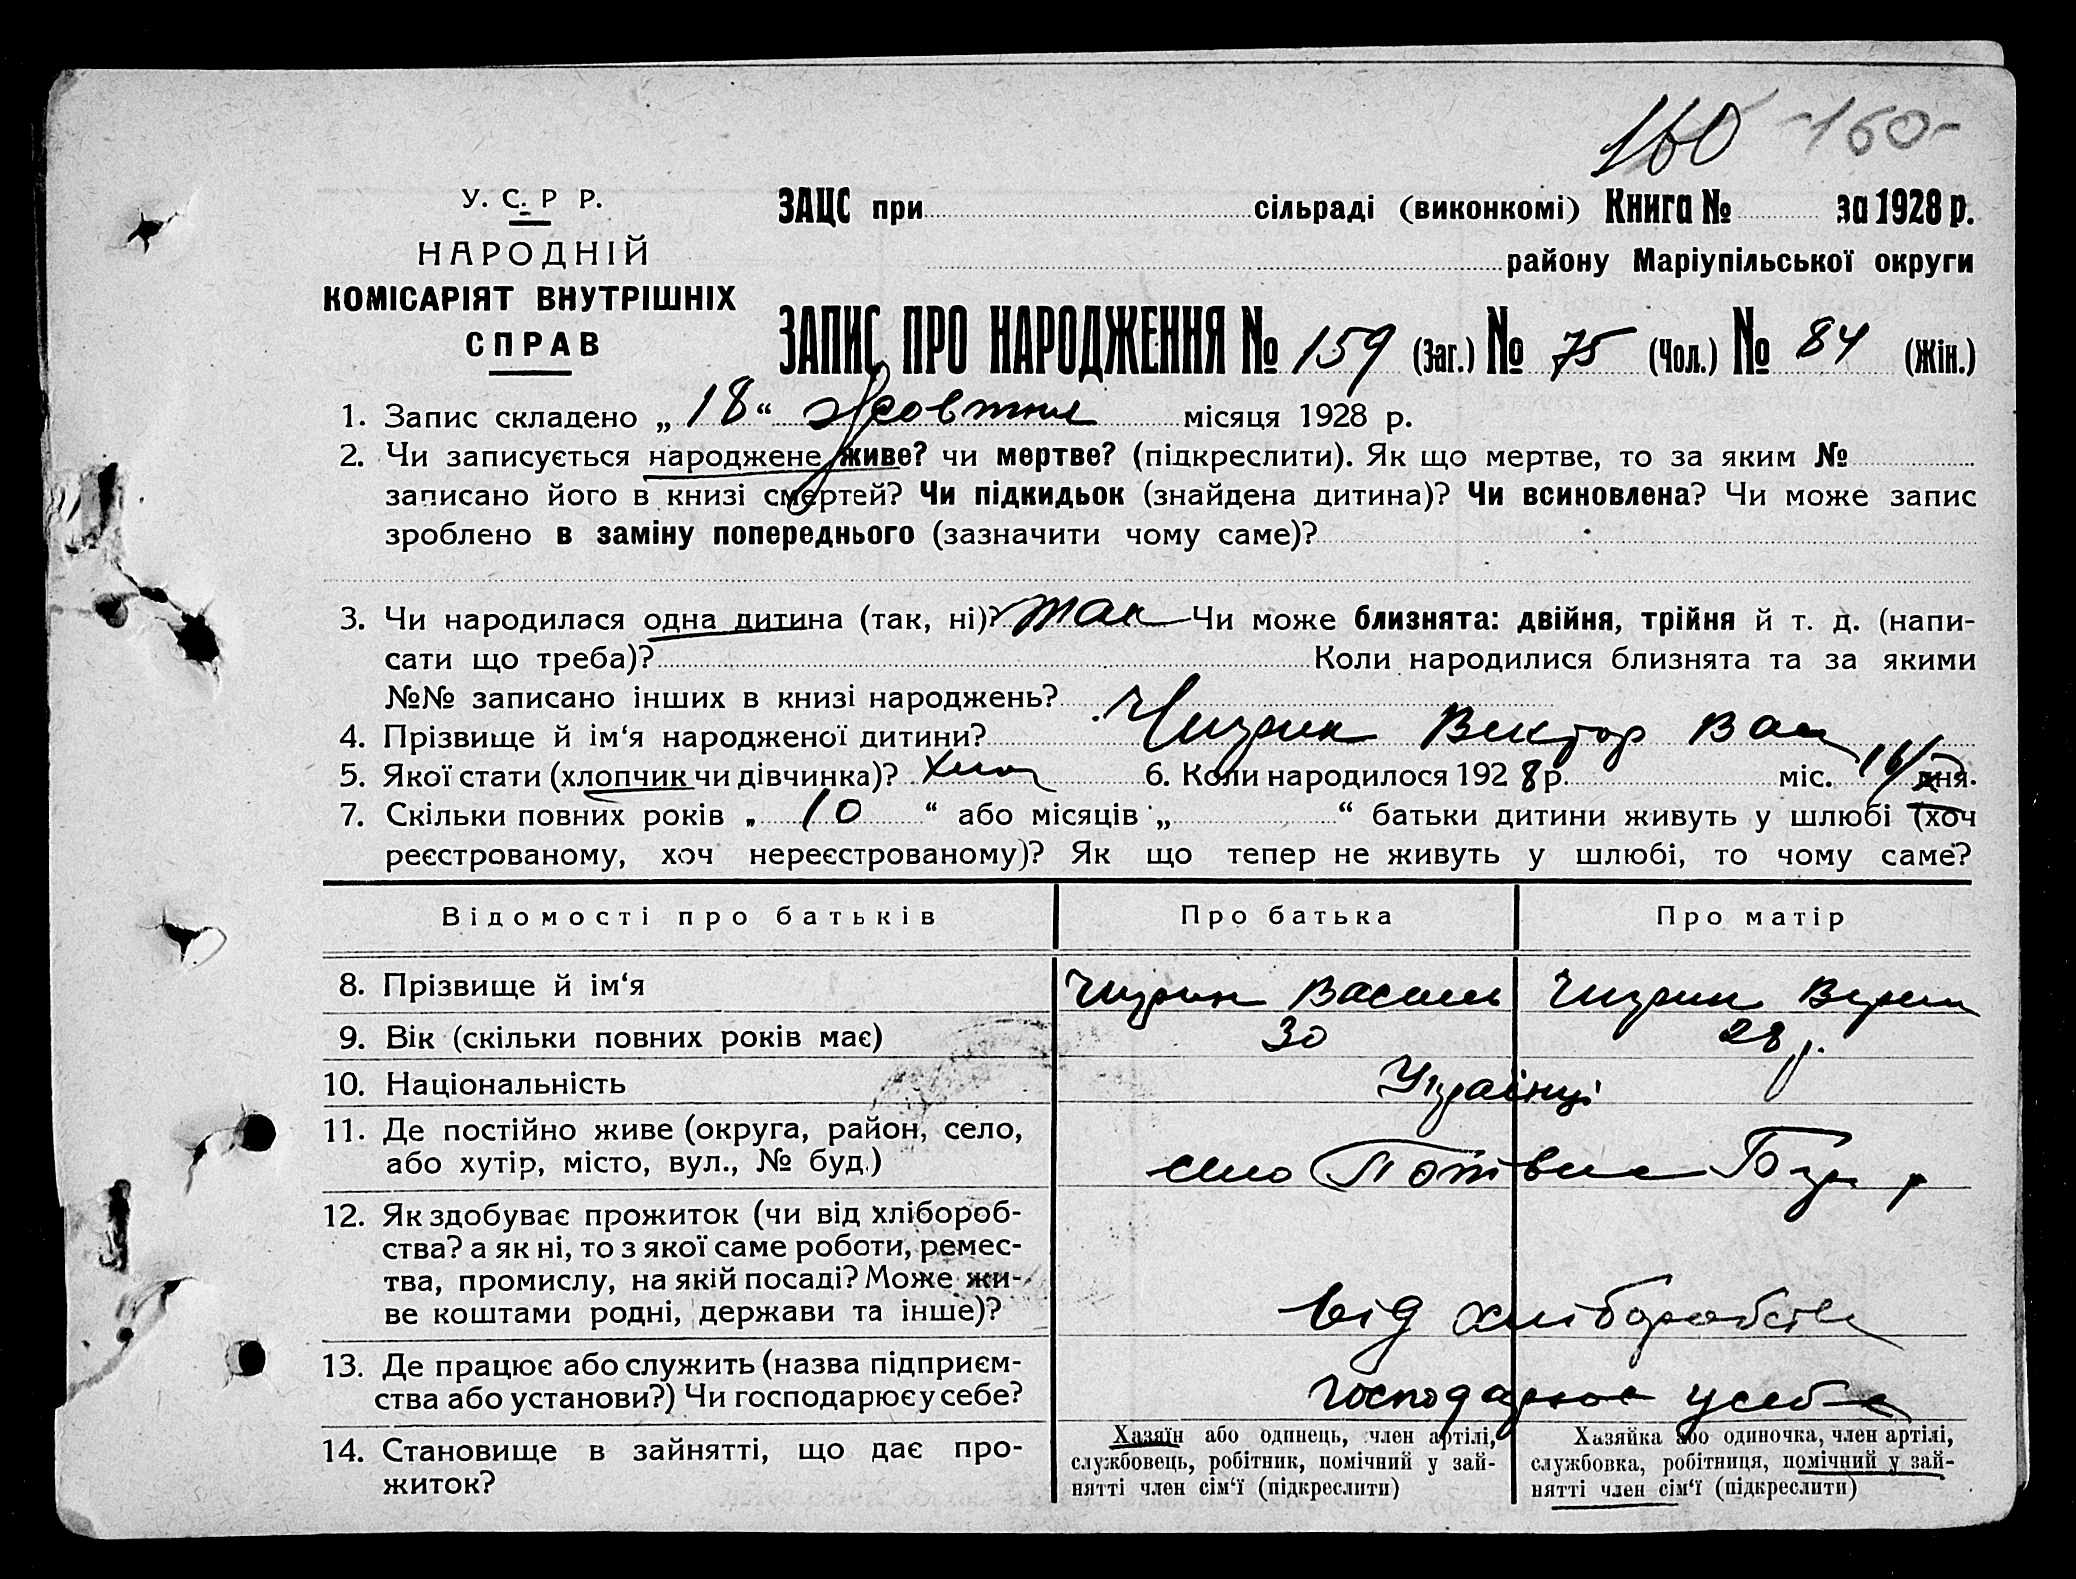 160 -160-
У. С. Р Р.
НАРОДНІЙ
КОМІСАРІЯТ ВНУТРІШНІХ
СПРАВ
ЗАЦС при сільраді (виконкомі) Книга № за 1928 р.
району Маріупільської округи
ЗАПИС ПРО НАРОДЖЕННЯ № 159 (Заг.) № 75 (Чол.) № 84 (Жін.)
1. Запис складено „ 18 “ Жовтня місяця 1928 р.
2. Чи записується народжене живе? чи мертве? (підкреслити). Як що мертве, то за яким №
записано його в книзі смертей? Чи підкидьок (знайдена дитина)? Чи всиновлена? Чи може запис
зроблено в заміну попереднього (зазначити чому саме)?
3. Чи народилася одна дитина (так, ні)? так Чи може близнята: двійня, трійня й т. д. (напи-
сати що треба)? Коли народилися близнята та за якими
№№ записано інших в книзі народжень?
4. Прізвище й ім‘я народженої дитини? Чизрик Виктор Вас
5. Якої стати (хлопчик чи дівчинка)? Хлоп 6. Коли народилося 1928 р. міс. 16/ дня.
7. Скільки повних років „ 10 “ або місяців „ “ батьки дитини живуть у шлюбі (хоч
реєстрованому, хоч нереєстрованому)? Як що тепер не живуть у шлюбі, то чому саме?
Відомості про батьків Про батька Про матір
8. Прізвище й ім‘я Василь
9. Вік (скільки повних років має) 30 28 р.
10. Національність Українці
11. Де постійно живе (округа, район, село,
або хутір, місто, вул., № буд.) село
12. Як здобуває прожиток (чи від хлібороб-
ства? а як ні, то з якої саме роботи, ремес-
тва, промислу, на якій посаді? Може жи-
ве коштами родні, держави та інше)? від хліборобства
13. Де працює або служить (назва підприєм-
ства або установи?) Чи господарює у себе? господарює у себе
14. Становище в зайнятті, що дає про-
житок?
Хазяїн або одинець, член артілі,
службовець, робітник, помічний у зай-
нятті член сім‘ї (підкреслити)
Хазяйка або одиночка, член артілі,
службовка, робітниця, помічний у зай-
нятті член сім‘ї (підкреслити)